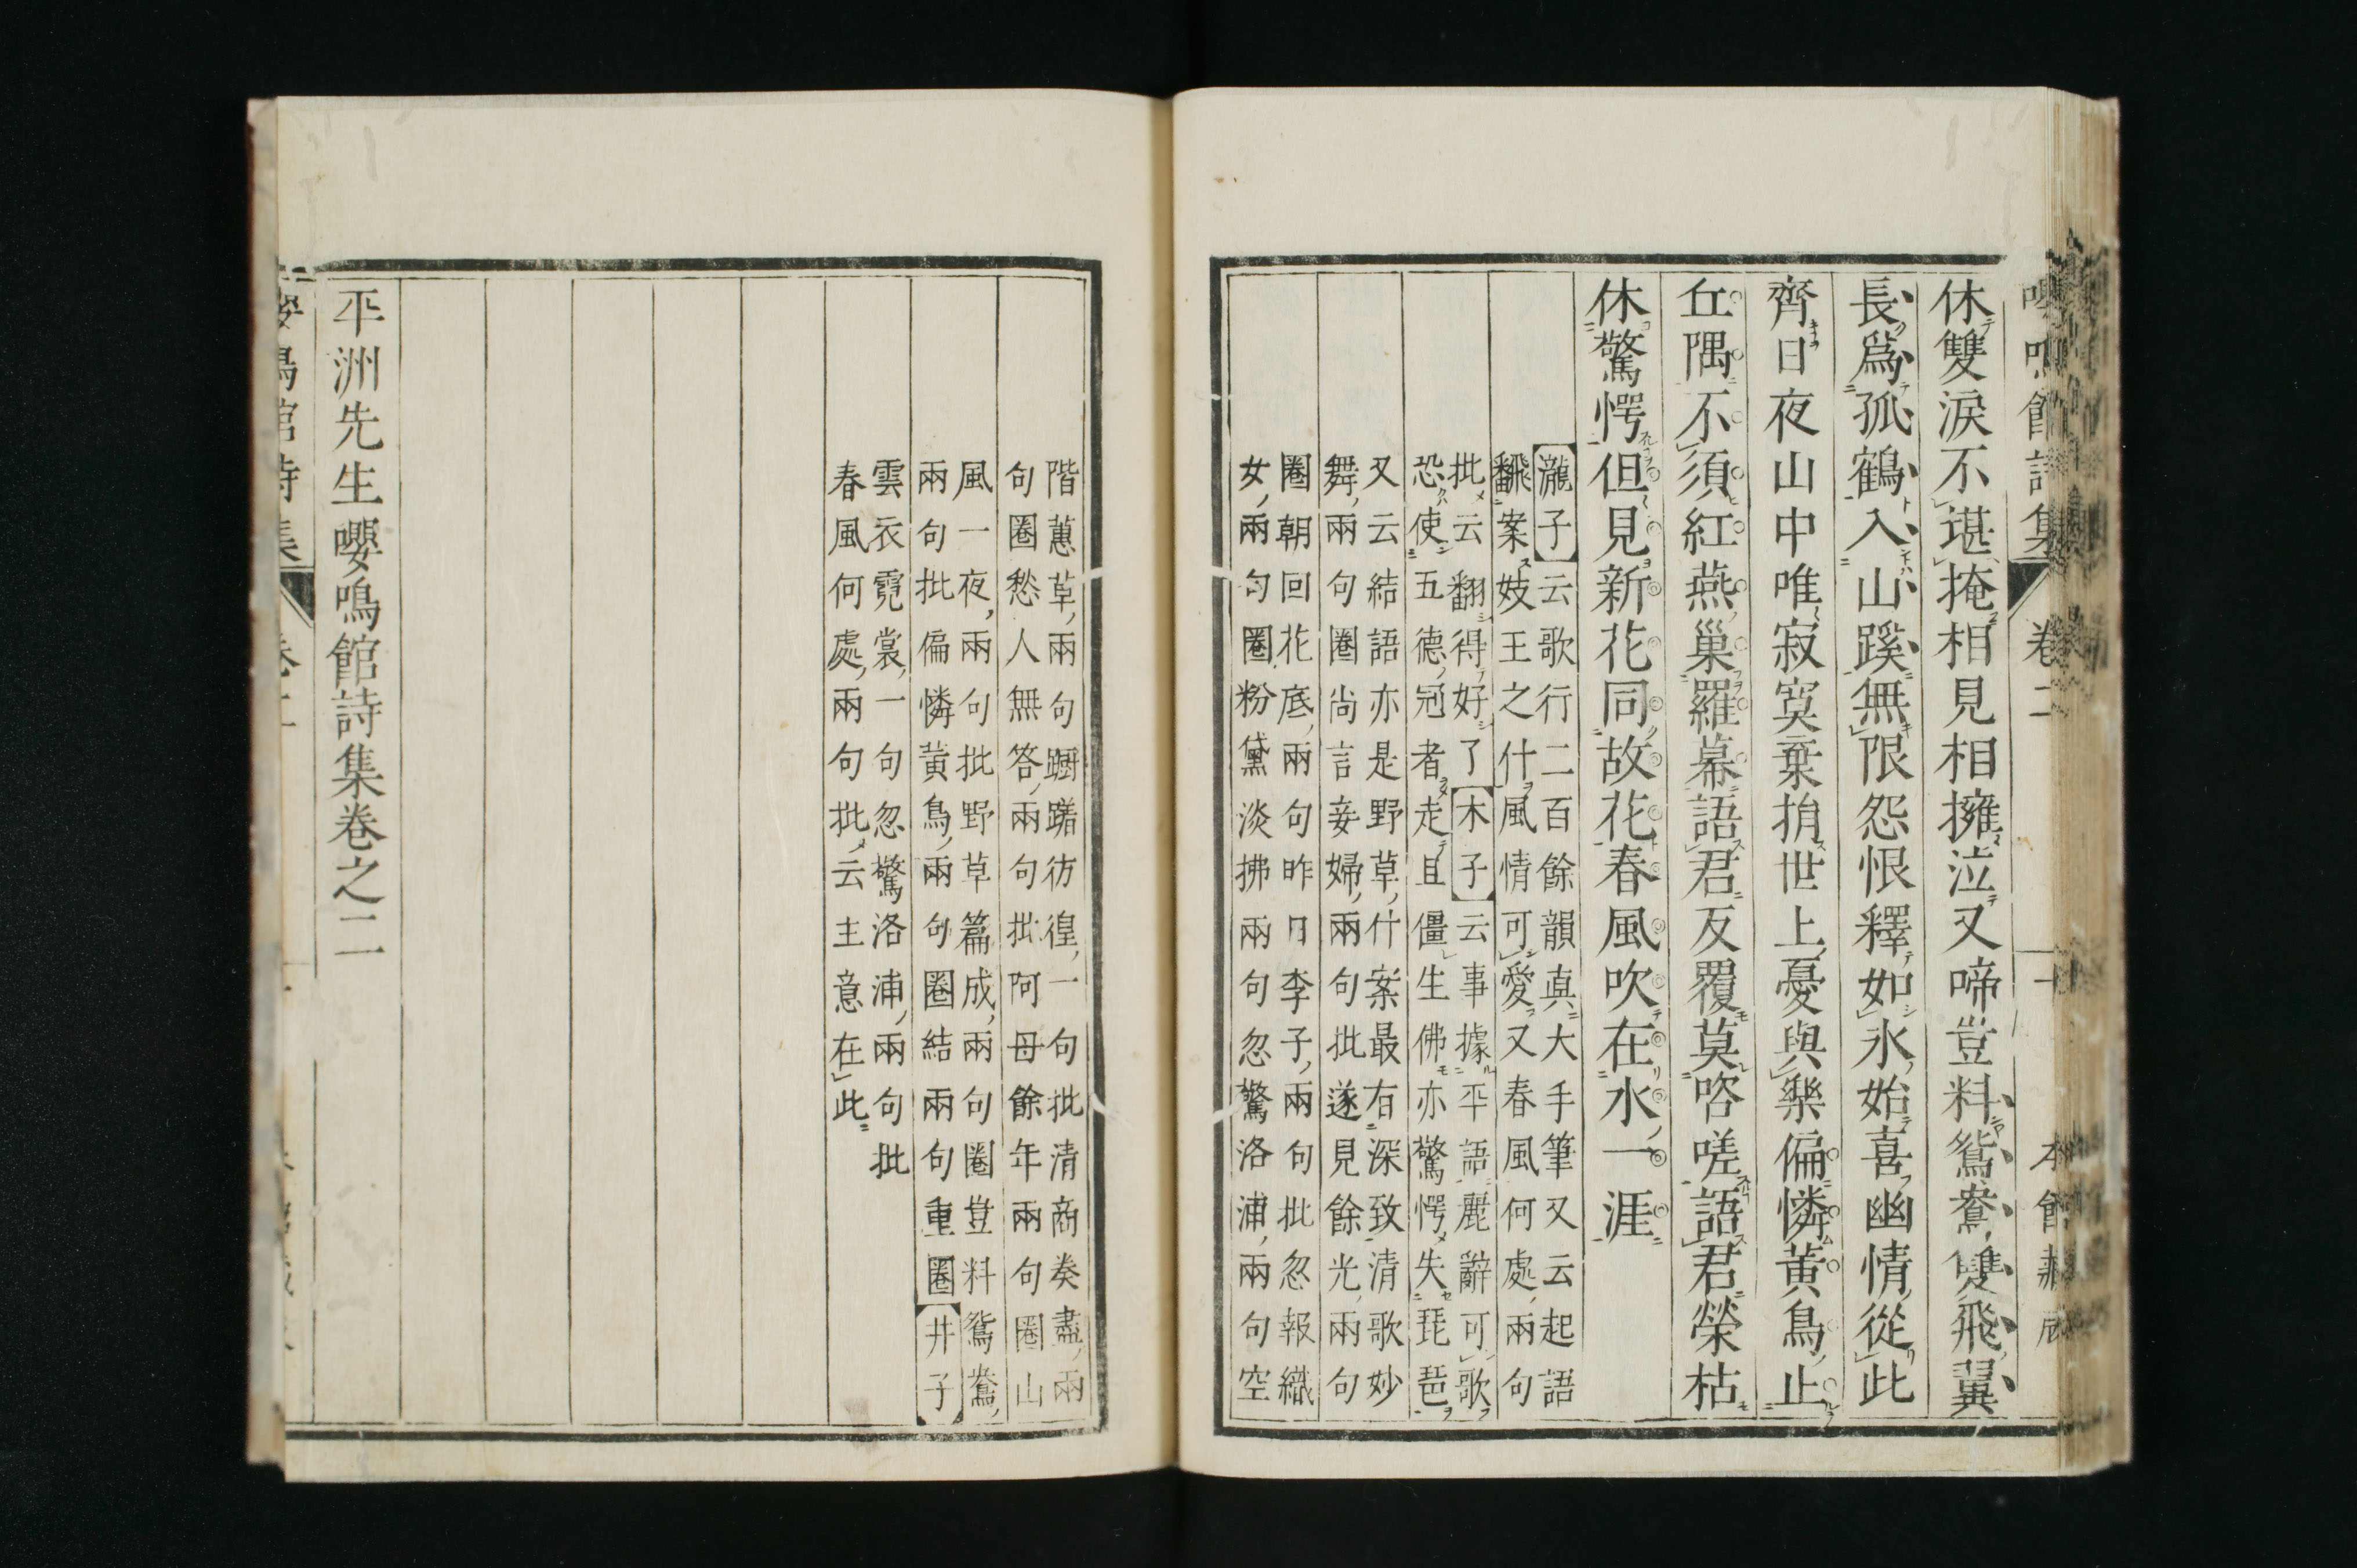 嚶鳴館詩集 卷二 本館藏版
休雙淚不堪掩相見相擁泣又啼豈料鴛鴦雙飛翼
長爲孤鶴入山蹊無限怨恨釋如氷始喜幽情從此
齊日夜山中唯寂寞棄捐世上憂與樂偏憐黃鳥止
丘隅不須紅燕巢羅幕語君反覆莫咨嗟語君榮枯
休驚愕但見新花同故花春風吹在水一涯
【瀧子】云歌行二百餘韻真大手筆又云起語
飜案妓王之什風情可愛又春風何處兩句
批云翻得好了【木子】云事據平語麗辭可歌
恐使五德冠者走且僵生佛亦驚愕失琵琶
又云結語亦是野草什案最有深致清歌妙
舞兩句圈尚言妾婦兩句批遂見餘光兩句
圈朝回花底兩句昨日李子兩句批忽報織
女兩句圈粉黛淡拂兩句忽驚洛浦兩句空
階蕙草兩句躕躇彷徨一句批清商奏盡兩
句圈愁人無答兩句批阿母餘年兩句圈山
風一夜兩句批野草篇成兩句圈豈料鴛鴦
兩句批偏憐黃鳥兩句圈結兩句重圈【井子】
雲衣霓裳一句忽驚洛浦兩句批
春風何處兩句批云主意在此
平洲先生嚶鳴館詩集卷之二